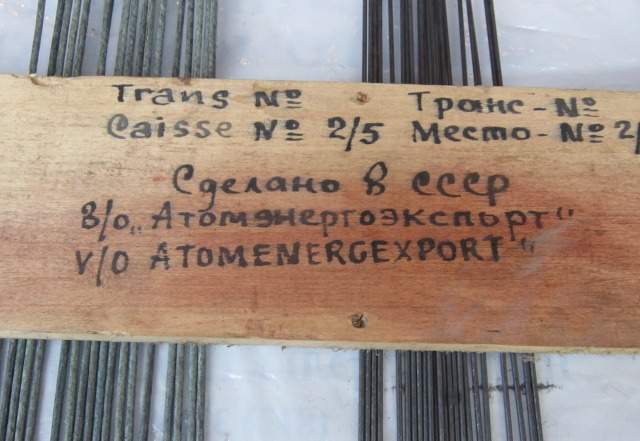 Trans № Транс-№
Caisse № 2/5 Место-№ 2/
Сделано в СССР
В/о „Атомэнергоэкспорт“
V/O ATOMENERGEXPORT“